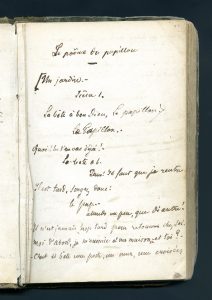 Le poème du papillon
[Un jardin.-
Scène 1.
La bête à bon Dieu, le papillon]
Le Papillon.
Quoi! tu t'en vas déjà!-
La bête
Dame! Il faut que je rentre
Il est tard, songez donc!
le pap.
attends un peu, que diantre!
Il n'est jamais trop tard pour retourner chez soi.
moi d'abord, je m'ennuie à ma maison, et toi?
C'est si bête une porte, un mur, une croisée